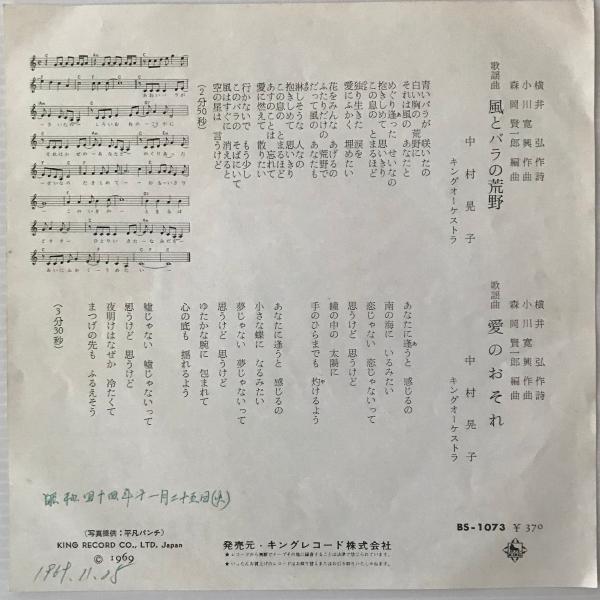 横井弘作詩
小川寛興作曲
森岡賢一郎編曲
歌謡曲 風とバラの荒野
中村晃子
キングオーケストラ
青いバラが 咲いたの
白い胸の 荒野に
それは風の あなたと
めぐり逢った せいなの
抱きしめて 思いきり
この息の とまるほど
独り生きた 涙を
愛にふかく 埋めたい
花をみんな あげるの
ふたりだけの 荒野で
だって風の あなたも
淋しそうな 人なの
抱きしめて 思いきり
この息の とまるほど
あすのことは 忘れて
愛に燃えて 散りたい
行かないで もう少し
このバラの そばにいて
風はすぐに 消えると
空の星は 言うけど
(2分50秒)
横井弘作詩
小川寛興作曲
森岡賢一郎編曲
歌謡曲 愛のおそれ
中村晃子
キングオーケストラ
あなたに逢うと 感じるの
南の海に いるみたい
恋じゃない 恋じゃないって
思うけど 思うけど
瞳の中の 太陽に
手のひらまでも 灼けるよう
あなたに逢うと 感じるの
小さな蝶に なるみたい
夢じゃない 夢じゃないって
思うけど 思うけど
ゆたかな腕に 包まれて
心の底も 揺れるよう
嘘じゃない 嘘じゃないって
思うけど 思うけど
夜明けはなぜか 冷たくて
まつげの先も ふるえそう
(3分30秒)
昭和四十四年十一月二十五日(火)
BS-1073 ¥370
(写真提供：平凡パンチ)
KING RECORD CO., LTD. Japan
© 1969
発売元・キングレコード株式会社
1969.11.25